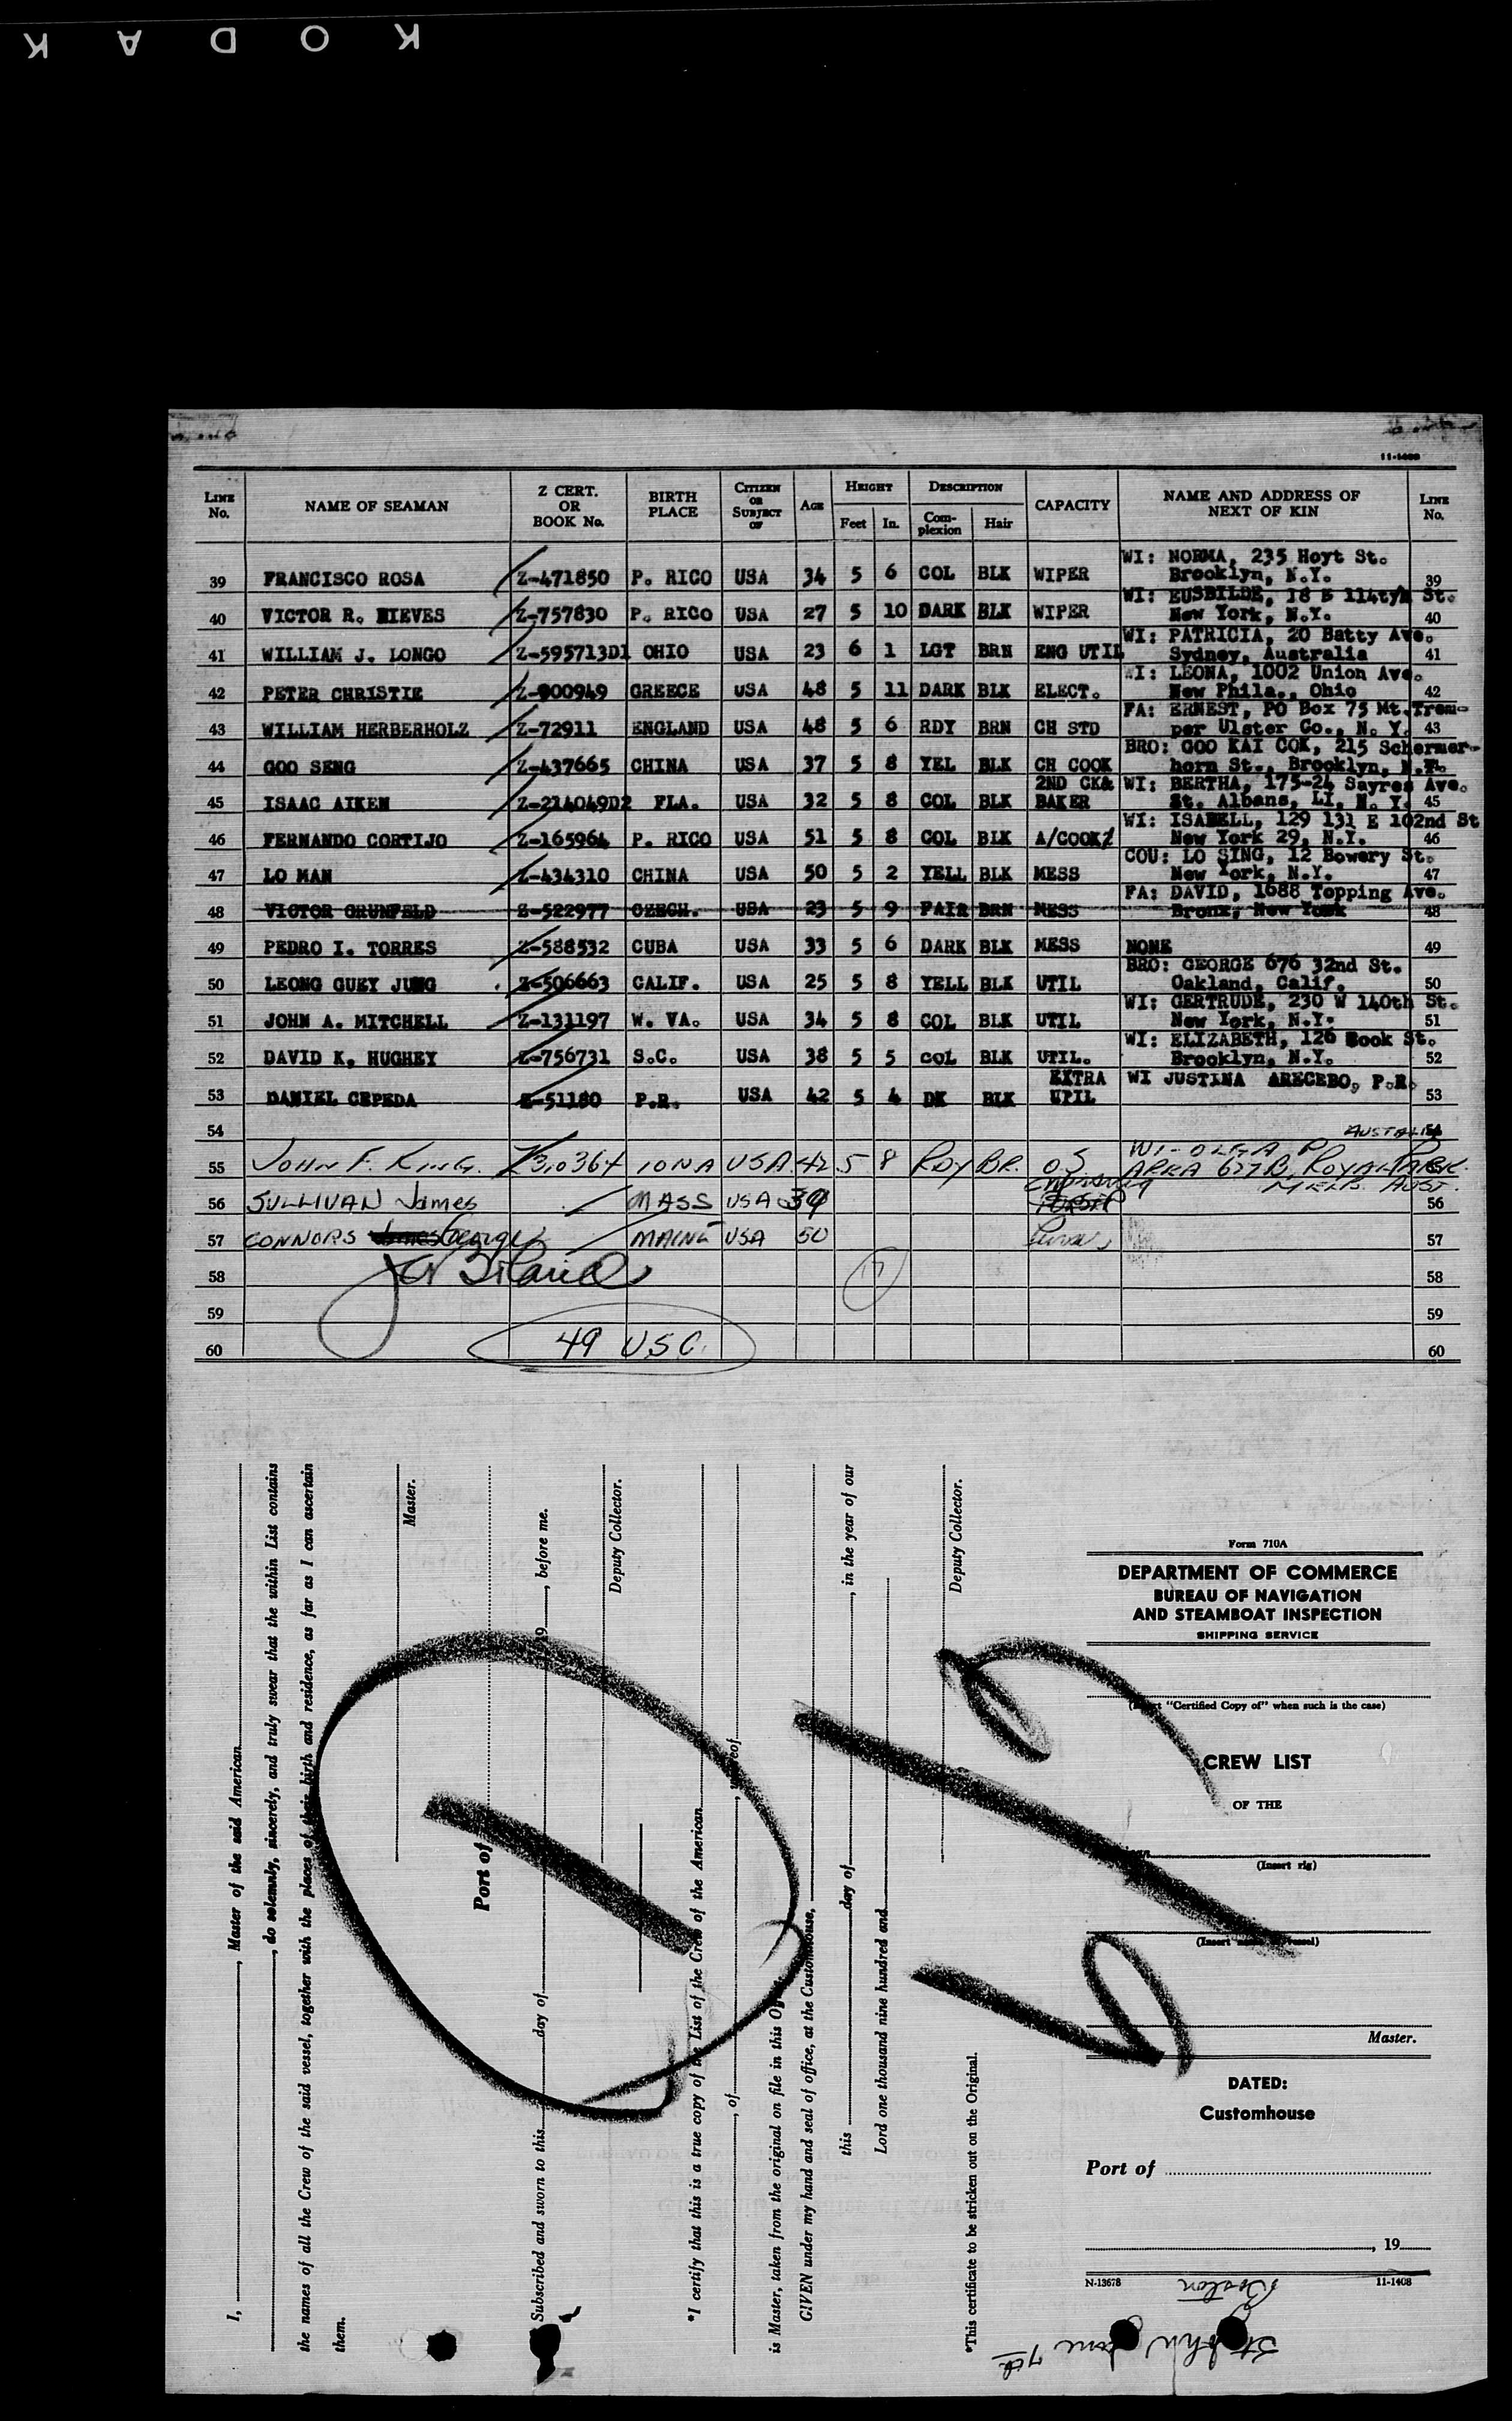 KODAK
11-1408
LINE No. NAME OF SEAMAN Z CERT. OR BOOK No. BIRTH PLACE CITIZEN OR SUBJECT OF AGE HEIGHT Feet In. DESCRIPTION Complexion Hair CAPACITY NAME AND ADDRESS OF NEXT OF KIN LINE No.
39 FRANCISCO ROSA Z-471850 P. RICO USA 34 5 6 COL BLK WIPER WI: NORMA, 235 Hoyt St. Brooklyn, N.Y. 39
40 VICTOR R. NIEVES Z-757830 P. RICO USA 27 5 10 DARK BLK WIPER WI: EUSBILDE, 18 E 114tyh St. New York, N.Y. 40
41 WILLIAM J. LONGO Z-595713D1 OHIO USA 23 6 1 LGT BRN ENG UTIL WI: PATRICIA, 20 Batty Ave. Sydney, Australia 41
42 PETER CHRISTIE Z-900949 GREECE USA 48 5 11 DARK BLK ELECT. WI: LEONA, 1002 Union Ave. New Phila., Ohio 42
43 WILLIAM HERBERHOLZ Z-72911 ENGLAND USA 48 5 6 RDY BRN CH STD FA: ERNEST, PO Box 75 Mt. Tremper Ulster Co., N. Y. 43
44 GOO SENG Z-437665 CHINA USA 37 5 8 YEL BLK CH COOK BRO: GOO KAI COK, 215 Schermerhorn St., Brooklyn, N.Y.
45 ISAAC AIKEN Z-214049D2 FLA. USA 32 5 8 COL BLK 2ND CK& BAKER WI: BERTHA, 175-24 Sayres Ave. St. Albans, LI, N. Y. 45
46 FERNANDO CORTIJO Z-165964 P. RICO USA 51 5 8 COL BLK A/COOK WI: ISABELL, 129 131 E 102nd St New York 29, N.Y. 46
47 LO MAN Z-434310 CHINA USA 50 5 2 YELL BLK MESS COU: LO SING, 12 Bowery St. New York, N.Y. 47
48 VICTOR GRUNFELD Z-522977 CZECH. USA 23 5 9 FAIR BRN MESS FA: DAVID, 1688 Topping Ave. Bronx, New York 48
49 PEDRO I. TORRES Z-588532 CUBA USA 33 5 6 DARK BLK MESS NONE 49
50 LEONG GUEY JUNG Z-506663 CALIF. USA 25 5 8 YELL BLK UTIL BRO: GEORGE 676 32nd St. Oakland, Calif. 50
51 JOHN A. MITCHELL Z-131197 W. VA. USA 34 5 8 COL BLK UTIL WI: GERTRUDE, 230 W 140th St. New York, N.Y. 51
52 DAVID K. HUGHEY Z-756731 S.C. USA 38 5 5 COL BLK UTIL. WI: ELIZABETH, 126 Book St. Brooklyn, N.Y. 52
53 DANIEL CEPEDA Z-51180 P.R. USA 42 5 4 DK BLK EXTRA UTIL WI JUSTINA ARECEBO, P.R. 53
54 AUSTRALIA 54
55 JOHN F. KING. IONA USA 42 5 8 RDY BR. O.S. WI-OLGA ARRA 627B, ROYAL PARK. MELB. AUST.
56 SULLIVAN James MASS USA 39 56
57 CONNORS George MAINE USA 50 57
58 17 58
59 59
60 49 USC. 60
I, , Master of the said American
, do solemnly, sincerely, and truly swear that the within List contains
the names of all the Crew of the said vessel, together with the places of their birth and residence, as far as I can ascertain
them.
Master.
Port of
Subscribed and sworn to this day of 19 , before me.
Deputy Collector.
*I certify that this is a true copy of the List of the Crew of the American
, of , whereof
is Master, taken from the original on file in this Office.
GIVEN under my hand and seal of office, at the Customhouse,
this day of , in the year of our
Lord one thousand nine hundred and
Deputy Collector.
*This certificate to be stricken out on the Original.
Form 710A
DEPARTMENT OF COMMERCE
BUREAU OF NAVIGATION
AND STEAMBOAT INSPECTION
SHIPPING SERVICE
(Insert "Certified Copy of" when such is the case)
CREW LIST
OF THE
(Insert rig)
(Insert name of vessel)
Master.
DATED:
Customhouse
Port of
, 19
N-13678 11-1408
Boston
St John June 7th